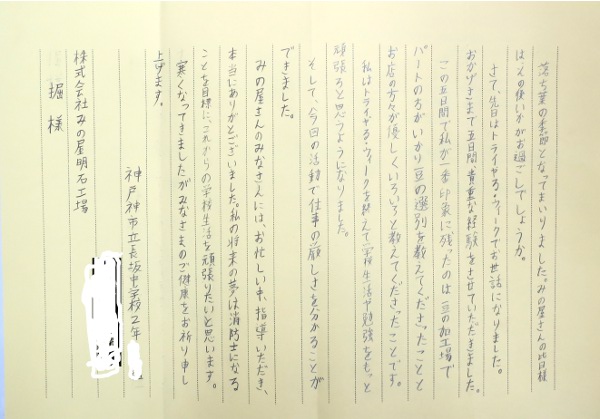 落ち葉の季節となってまいりました。みの屋さんの皆様
はいかがお過ごしでしょうか。
さて、先日はトライやる・ウィークでお世話になりました。
おかげさまで五日間、貴重な経験をさせていただきました。
この五日間で私が一番印象に残ったのは、豆の加工場で
パートの方がいかり豆の選別を教えてくださったことと
お店の方々が優しくいろいろと教えてくださったことです。
私はトライやる・ウィークを終えて学校生活や勉強をもっと
頑張ろうと思うようになりました。
そして、今回の活動で仕事の厳しさを分かることが
できました。
みの屋さんのみなさんにはお忙しい中、指導いただき、
本当にありがとございました。私の将来の夢は消防士になる
ことを目標に、これからの学校生活を頑張りたいと思います。
寒くなってきましたがみなさまのご健康をお祈り申し
上げます。
神戸神市立長坂中学校2年
株式会社みの屋明石工場
堀 様